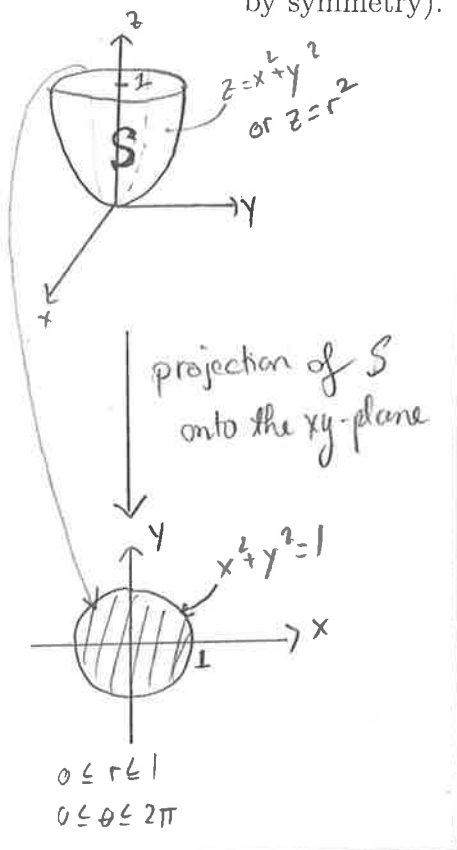 by symmetry).
z
1
z=x²+y²
or z=r²
S
y
x
projection of S
onto the xy-plane
y
x²+y²=1
x
1
0≤r≤1
0≤θ≤2π